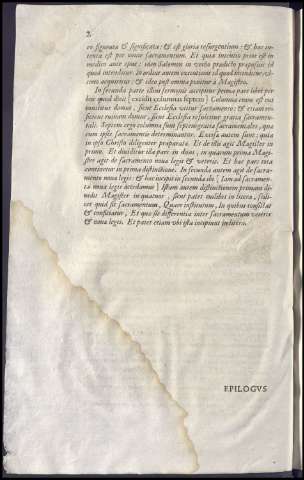 2
re figurata & significata: & est gloria resurgentium: & hac in-
tentio est per omne sacramentum. Et quia intentio prior est in
medico ante opus: tum Salomon in verbo praedicto
quod intenditur. In aliis autem executionis id quod intenditur, ul-
timo acquiritur: & ideo post omnia ponitur a Magistro.
In secunda parte illius sermonis accipitur prima pars libri per
hoc quod dicit [excidit columnas septem] Columna enim est su-
stentans domus, sicut Ecclesia vocatur sacramentis: & etiam re-
ficiens ruinam domus, sicut Ecclesia reficitur gratia sacramen-
tali. Septem ergo columnae sunt septem gratia sacramentales, quae
cum ipsis Sacramentis determinantur. Excisa autem sunt: quia
in ipso Christo diligenter praeparata. Et de istis agit Magister in
primo. Et dividitur illa pars in duas, in quarum prima Magi-
ster agit de sacramentis nova legis & veteris. Et haec pars tota
continetur in prima distinctione. In secunda autem agit de sacra-
mentis nova legis: & haec incipit in secunda ibi [Iam ad sacramen-
ta nova legis accedamus] Istam autem distinctionem primam di-
videt Magister in quatuor, sicut patet
cet quid sit sacramentum, Quare institutum, In quibus consistat
& conficiatur, Et quae sit differentia inter sacramentum veteris
& nova legis. Et patet etiam ubi ista incipiunt in littera.
EPILOGVS